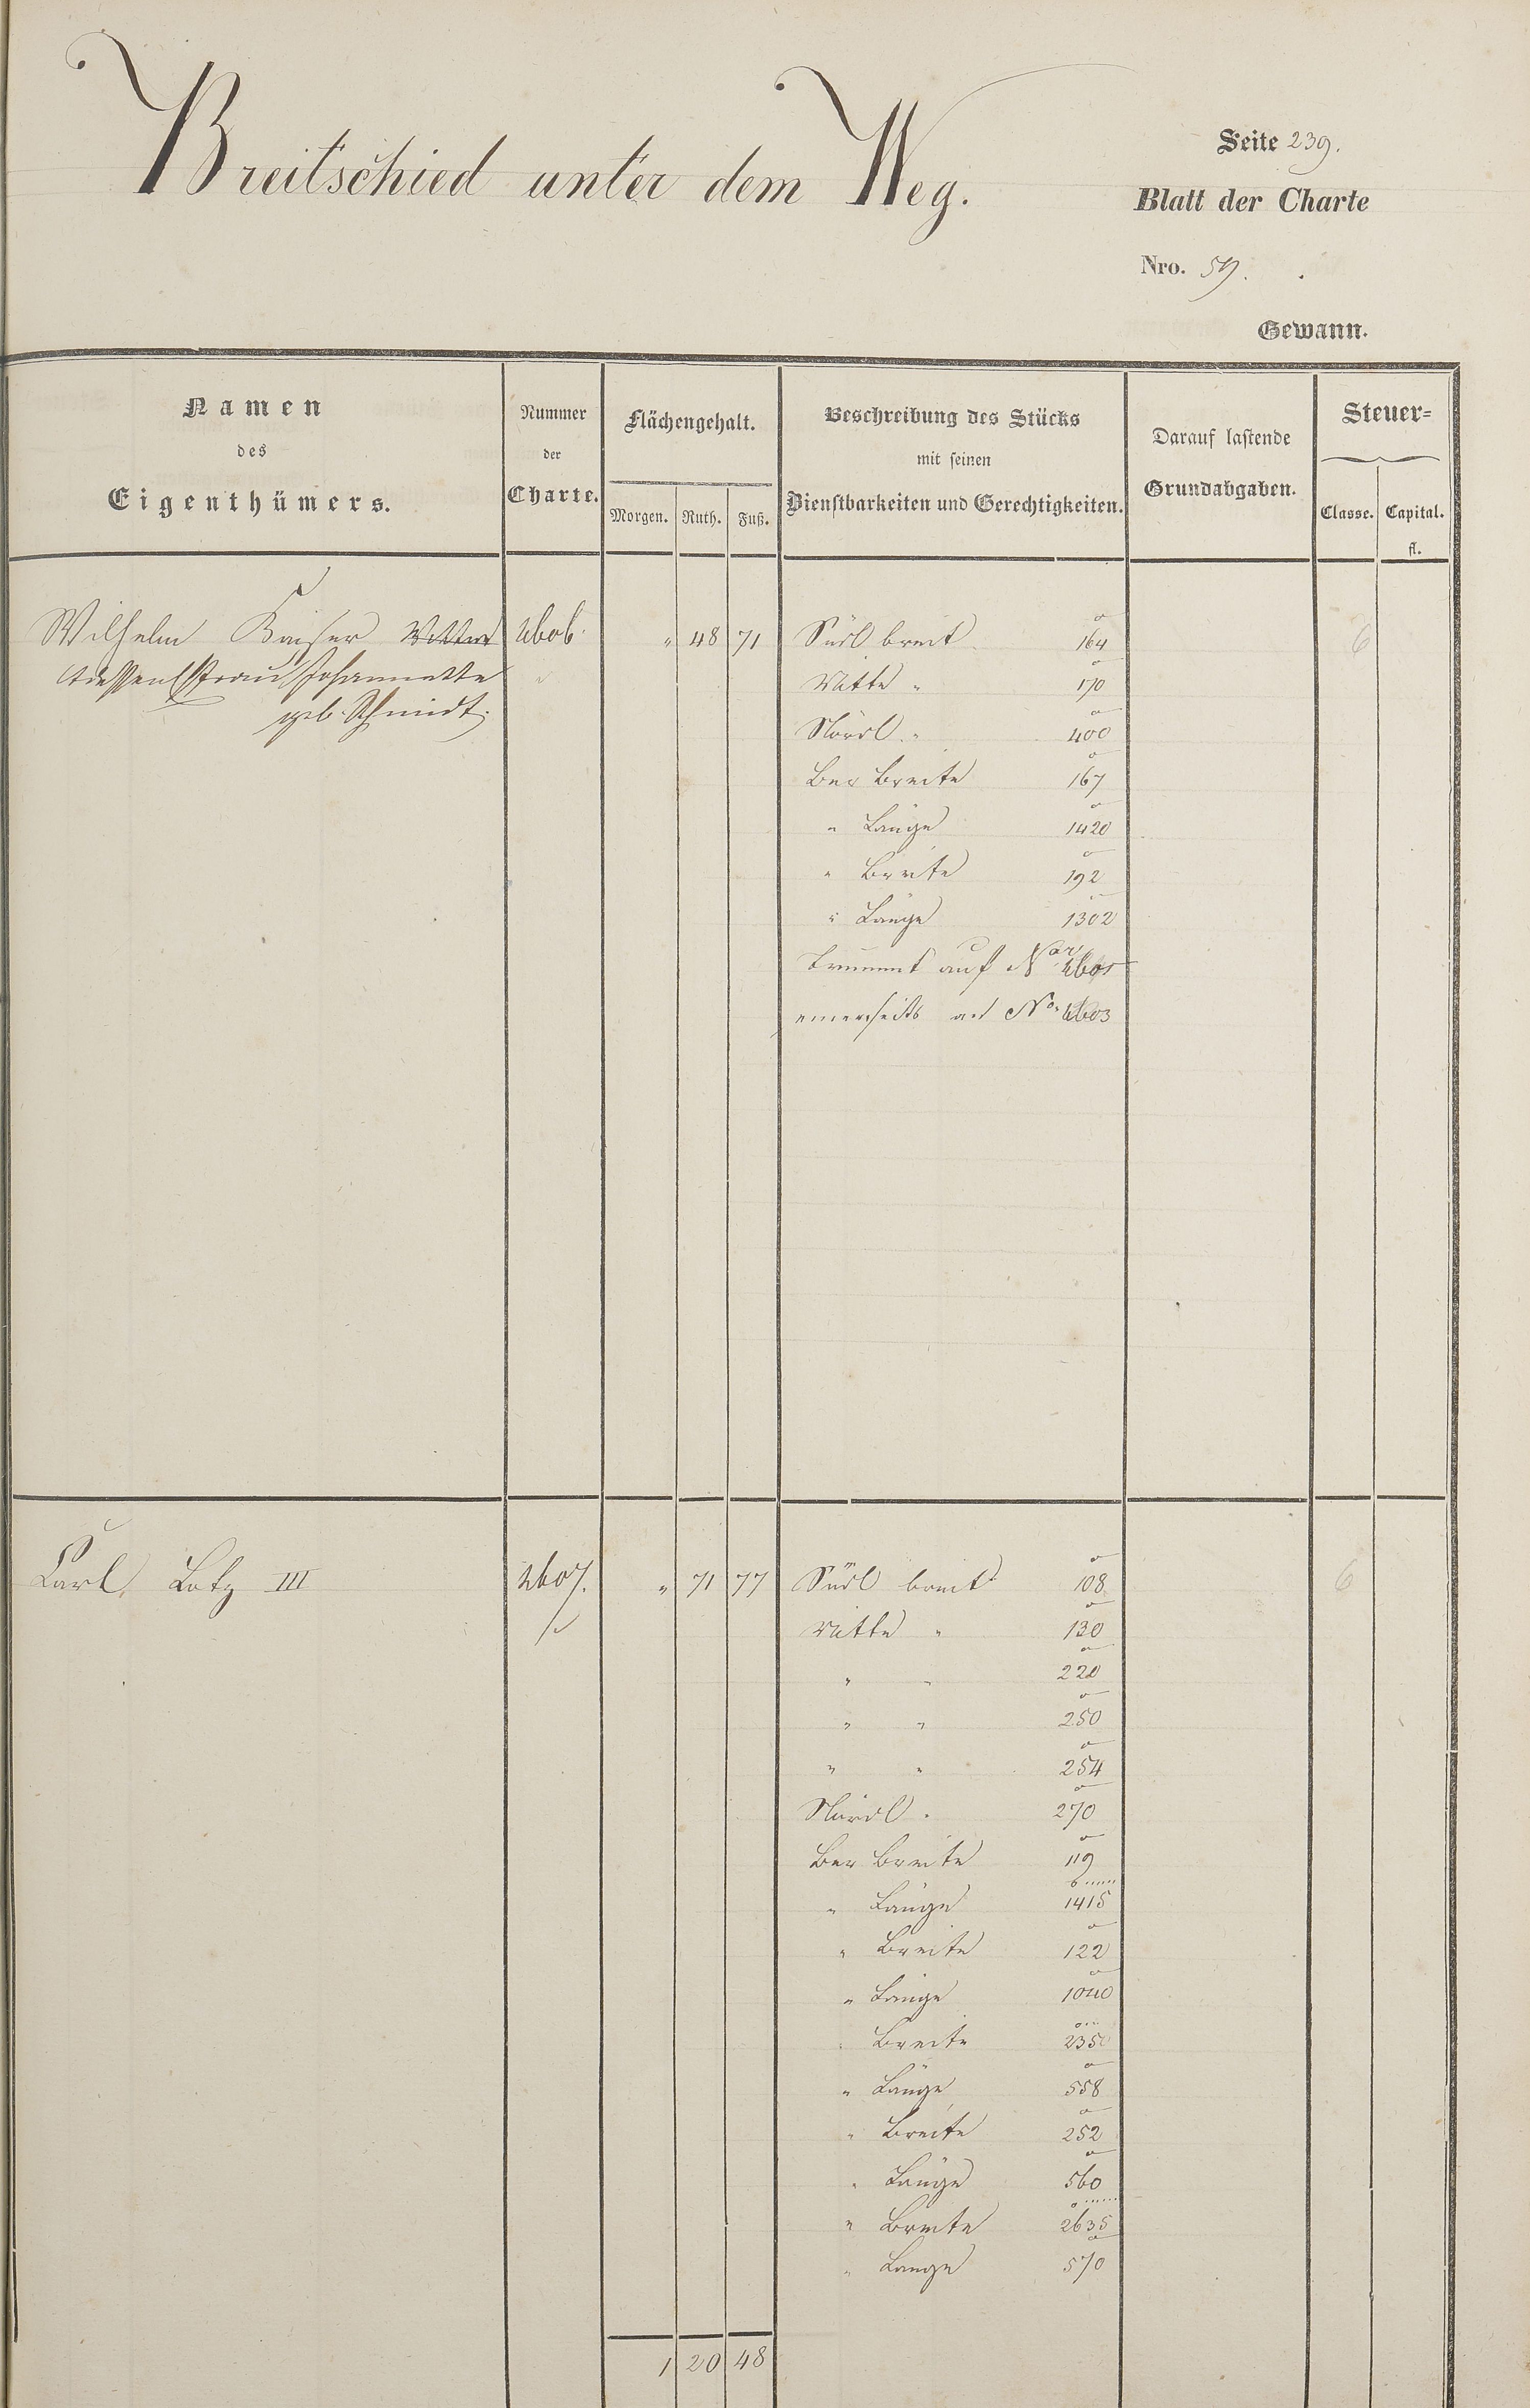 Breitschied unter dem Weg.
Seite 239.
Blatt der Charte
Nro. 59.
Gewann.
Namen
des
Eigenthümers.
Nummer
der
Charte.
Flächengehalt.
Morgen. Ruth. Fuß.
Beschreibung des Stücks
mit seinen
Dienstbarkeiten und Gerechtigkeiten.
Darauf lastende
Grundabgaben.
Steuer=
Classe. Capital.
fl.
Wilhelm Kaiser 4606. " 48 71 Südl breit 164 6
dessen Frau Johannette Mitte " 170
geb. Schmidt. Nördl. " 400
Ber Breite 167
" Länge 1420
" Breite 192
" Länge 1302
auf No 4605
einerseits an No. 4603
Carl Lotz III 4607. " 71 77 Südl breit 108 6
Mitte " 130
" " 220
" " 250
" " 254
Nördl. 270
Ber Breite 119
" Länge 1415
" Breite 122
" Länge 1040
Breite 2350
" Länge 558
" Breite 252
" Länge 560
" Breite 2635
" Länge 570
1 20 48